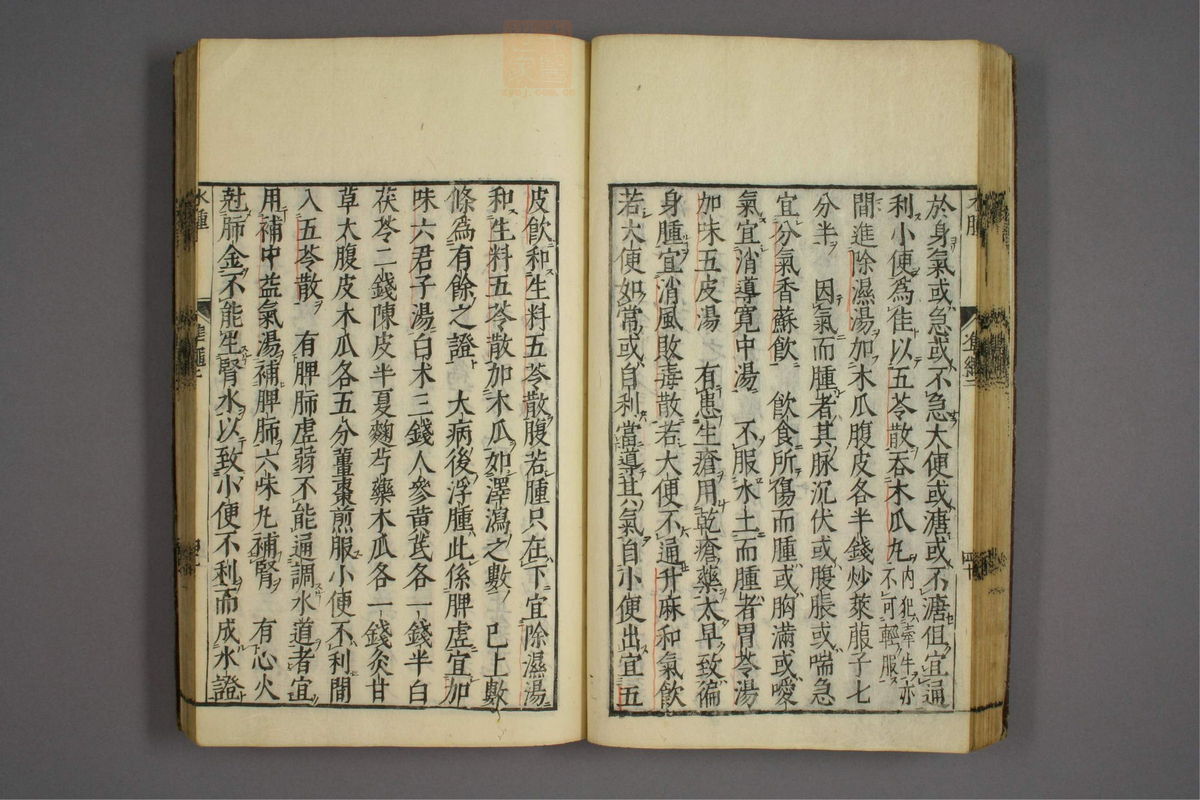 於身氣或急或不急大便或溏或不溏但宜通
利小便爲佳以五苓散吞木瓜丸内犯牽牛亦不可輕服
間進除濕湯加木瓜腹皮各半錢炒萊菔子七
分半　因氣而腫者其脉沉伏或腹脹或喘急
宜分氣香蘇飲　飲食所傷而腫或胸滿或噯
氣宜消導寛中湯　不服水土而腫者胃苓湯
加味五皮湯　有患生瘡用乾瘡藥太早致徧
身腫宜消風敗毒散若大便不通升麻和氣飲
若大便如常或自利當導其氣自小便出宜五
皮飲和生料五苓散腹若腫只在下宜除濕湯
和生料五苓散加木瓜如澤瀉之數　已上數
條爲有餘之證　大病後浮腫此係脾虚宜加
味六君子湯白术三錢人參黄芪各一錢半白
茯苓二錢陳皮半夏麴芍藥木瓜各一錢炙甘
草大腹皮木瓜各五分薑棗煎服小便不利間
入五苓散　有脾肺虚弱不能通調水道者宜
用補中益氣湯補脾肺六味丸補腎　有心火
尅肺金不能生腎水以致小便不利而成水證
水腫